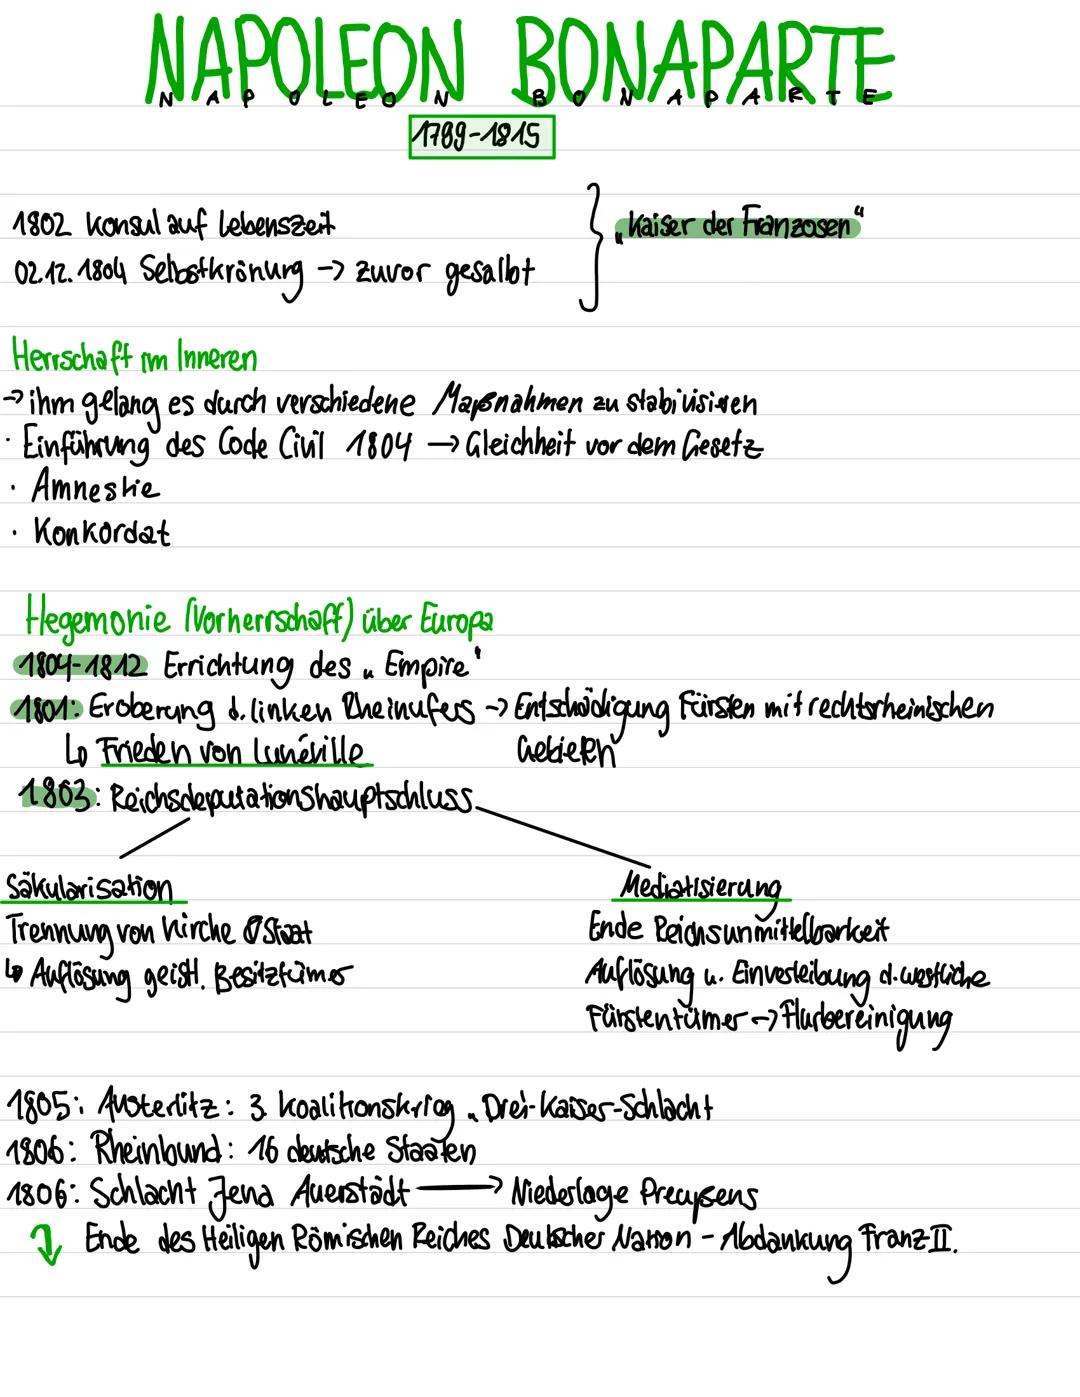 NAPOLEON BONAPARTE
NAPOLEON BONAPARTE
1789-1815
1802 Konsul auf Lebenszeit
02.12.1804 Selbstkrönung -> zuvor gesalbt
„Kaiser der Franzosen“
Herrschaft im Inneren
-> ihm gelang es durch verschiedene Maßnahmen zu stabilisieren
· Einführung des Code Civil 1804 -> Gleichheit vor dem Gesetz
· Amnestie
· Konkordat
Hegemonie (Vorherrschaft) über Europa
1804-1812 Errichtung des „Empire“
1801: Eroberung d. linken Rheinufers -> Entschädigung Fürsten mit rechtsrheinischen
Gebieten
↳ Frieden von Lunéville
1803: Reichsdeputationshauptschluss
Säkularisation
Trennung von Kirche & Staat
↳ Auflösung geistl. Besitztümer
Mediatisierung
Ende Reichsunmittelbarkeit
Auflösung u. Einverleibung d. westliche
Fürstentümer -> Flurbereinigung
1805: Austerlitz: 3. Koalitionskrieg „Drei-Kaiser-Schlacht
1806: Rheinbund: 16 deutsche Staaten
1806: Schlacht Jena Auerstädt -> Niederlage Preußens
Ende des Heiligen Römischen Reiches Deutscher Nation - Abdankung Franz II.